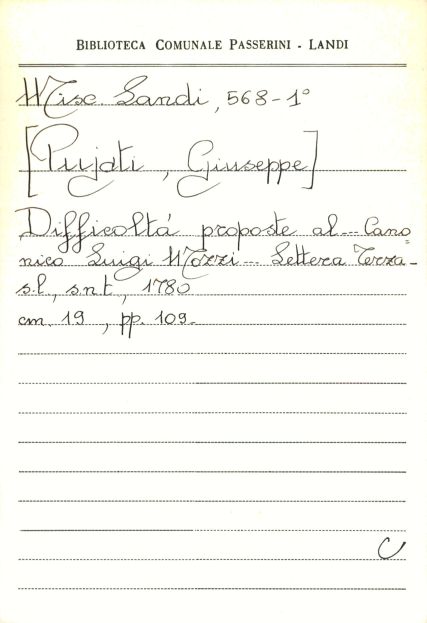 BIBLIOTECA COMUNALE PASSERINI - LANDI
Misc. Landi, 568-1°
[Pujati, Giuseppe]
Difficoltá proposte al... Cano=
nico Luigi Mozzi... Lettera Terza-
s.l, s.n.t, 1780
cm. 19, pp. 109.
C